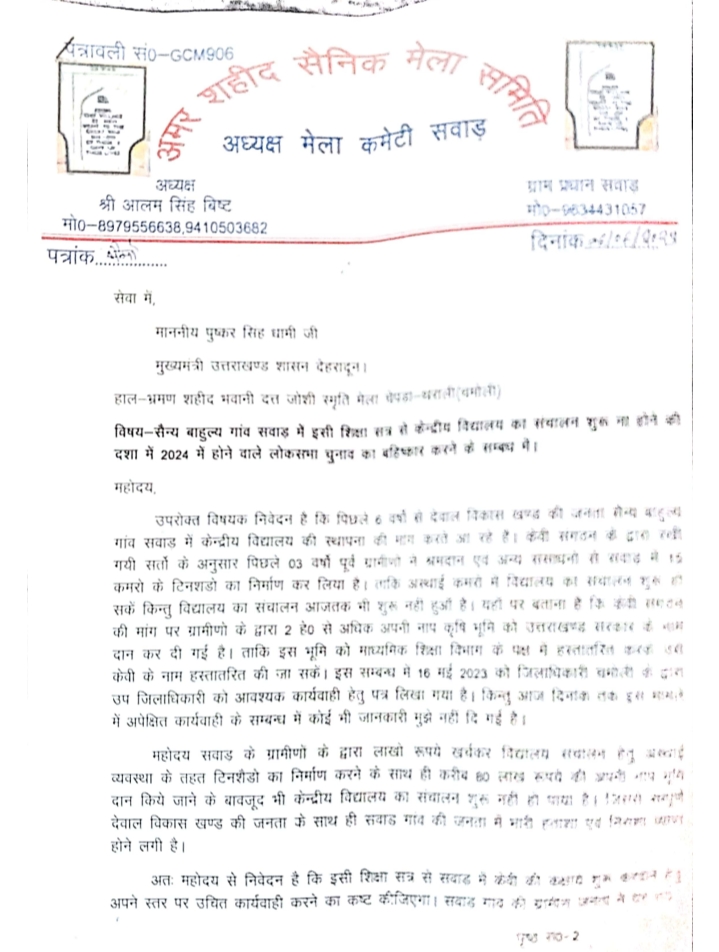 पत्रावली सं0-GCM906
अमर शहीद सैनिक मेला समिति
अध्यक्ष मेला कमेटी सवाड़
अध्यक्ष
श्री आलम सिंह बिष्ट
मो0-8979556638,9410503682
ग्राम प्रधान सवाड़
मो0-9634431057
पत्रांक
दिनांक
सेवा में,
माननीय पुष्कर सिंह धामी जी
मुख्यमंत्री उत्तराखण्ड शासन देहरादून।
हाल-भ्रमण शहीद भवानी दत्त जोशी स्मृति मेला चेपडा-थराली(चमोली)
विषय-सैन्य बाहुल्य गांव सवाड़ में इसी शिक्षा सत्र से केन्द्रीय विद्यालय का संचालन शुरू ना होने की
दशा में 2024 में होने वाले लोकसभा चुनाव का बहिष्कार करने के सम्बध में।
महोदय,
उपरोक्त विषयक निवेदन है कि पिछले 6 वर्षो से देवाल विकास खण्ड की जनता सैन्य बाहुल्य
गांव सवाड़ में केन्द्रीय विद्यालय की स्थापना की मांग करते आ रहे है। केवी संगठन के द्वारा रखी
गयी सर्तो के अनुसार पिछले 03 वर्षो पूर्व ग्रामीणो ने श्रमदान एवं अन्य संसाधनो से सवाड़ में 15
कमरो के टिनशडो का निर्माण कर लिया है। ताकि अस्थाई कमरो में विद्यालय का संचालन शुरू हो
सकें किन्तु विद्यालय का संचालन आजतक भी शुरू नही हुऔ है। यहाँ पर बताना है कि केवी संगठन
की मांग पर ग्रामीणो के द्वारा 2 हे0 से अधिक अपनी नाप कृषि भूमि को उत्तराखण्ड सरकार के नाम
दान कर दी गई है। ताकि इस भूमि को माध्यमिक शिक्षा विभाग के पक्ष में हस्तातरित करके उसे
केवी के नाम हस्तातरित की जा सकें। इस सम्बन्ध में 16 मई 2023 को जिलाधिकारी चमोली के द्वारा
उप जिलाधिकारी को आवश्यक कार्यवाही हेतु पत्र लिखा गया है। किन्तु आज दिनांक तक इस मामले
में अपेक्षित कार्यवाही के सम्बन्ध में कोई भी जानकारी मुझे नही दि गई है।
महोदय सवाड़ के ग्रामीणों के द्वारा लाखो रूपये खर्चकर विद्यालय संचालन हेतु अस्थाई
व्यवस्था के तहत टिनशैडो का निर्माण करने के साथ ही करीब 80 लाख रूपये की अपनी नाप भूमि
दान किये जाने के बावजूद भी केन्द्रीय विद्यालय का संचालन शुरू नही हो पाया है। जिससे सम्पूर्ण
देवाल विकास खण्ड की जनता के साथ ही सवाड़ गांव की जनता में भारी हताशा एवं निराशा व्याप्त
होने लगी है।
अतः महोदय से निवेदन है कि इसी शिक्षा सत्र से सवाड़ में केवी की कक्षाएं शुरू करवाने हेतु
अपने स्तर पर उचित कार्यवाही करने का कष्ट कीजिएगा। सवाड़ गांव की ग्रामीण जनता ने
पृष्ठ स0-2